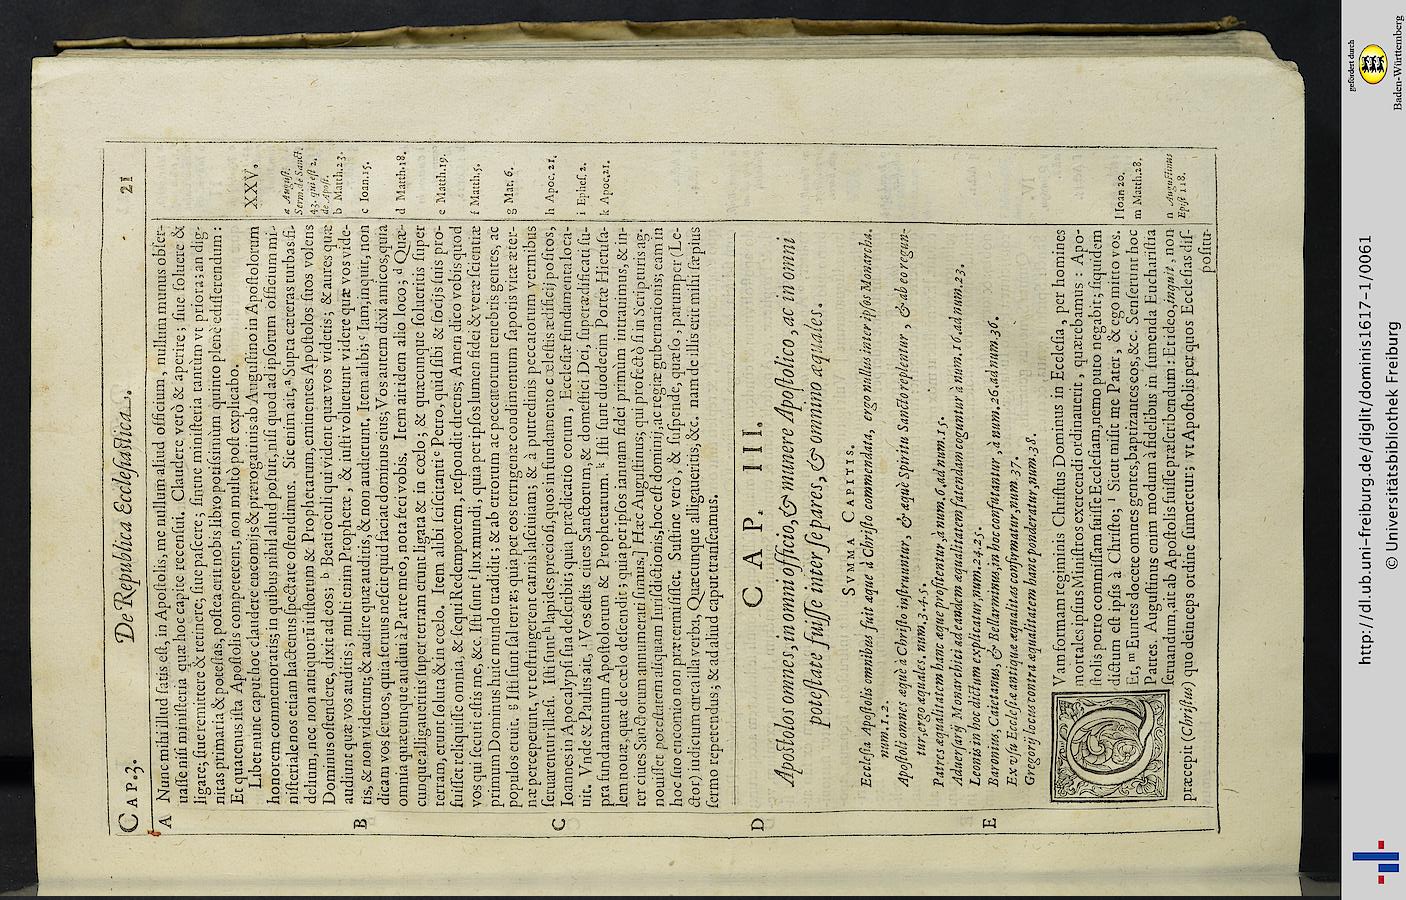 CAP. 3.
De Republica Ecclesiastica.
21
A Nunc mihi illud satis est, in Apostolis, me nullum aliud officium, nullum munus obser-
uasse nisi ministeria quæ hoc capite recensui. Claudere verò & aperire; siue soluere &
ligare; siue remittere & retinere; siue pascere; sint ne ministeria tantùm vt priora; an dig-
nitas primaria & potestas, postea erit nobis libro potissimùm quinto plenè edisserendum:
Et quatenus ista Apostolis competerent, non multò post explicabo.
Liber nunc caput hoc claudere encomijs & prærogatiuis ab Augustino in Apostolorum
XXV.
honorem commemoratis; in quibus nihil aliud posuit, nisi quod ad ipsorum officium mi-
nisteriale nos etiam hactenus spectare ostendimus. Sic enim ait, ᵃ Supra cæteras turbas fi-
a August.
Serm. de Sanct.
43. qui est 2.
de Apost.
delium, nec non antiquorū iustorum & Prophetarum, eminentes Apostolos suos volens
Dominus ostendere, dixit ad eos; ᵇ Beati oculi qui vident quæ vos videtis; & aures quæ
b Matth. 23.
audiunt quæ vos auditis; multi enim Prophetæ, & iusti voluerunt videre quæ vos vide-
B tis, & non viderunt; & audire quæ auditis, & non audierunt. Item alibi; ᶜ Iam, inquit, non
c Ioan. 15.
dicam vos seruos, quia seruus nescit quid faciat dominus eius; Vos autem dixi amicos, quia
omnia quæcunque audiui à Patre meo, nota feci vobis. Item ait idem alio loco; ᵈ Quæ-
d Matth. 18.
cunque alligaueritis super terram erunt ligata & in cœlo; & quæcunque solueritis super
terram, erunt soluta & in cœlo. Item alibi sciscitanti ᵉ Petro, quid sibi & socijs suis pro-
e Matth. 19.
fuisset reliquisse omnia, & sequi Redemptorem, respondit dicens; Amen dico vobis quod
vos qui secuti estis me, &c. Isti sunt ᶠ lux mundi, quia per ipsos lumen fidei & veræ scientiæ
f Matth. 5.
primum Dominus huic mundo tradidit; & ab errorum ac peccatorum tenebris gentes, ac
populos eruit. ᵍ Isti sunt sal terræ; quia per eos terrigenæ condimentum saporis vitæ æter-
g Mat. 6.
næ perceperunt, vt restringerent carnis lasciuiam; & à putredinis peccatorum vermibus
seruarentur illæsi. Isti sunt ʰ lapides preciosi, quos in fundamento cœlestis ædificij positos,
h Apoc. 21.
C Ioannes in Apocalypsi sua describit; quia prædicatio eorum, Ecclesiæ fundamenta loca-
uit. Vnde & Paulus ait, ⁱ Vos estis ciues Sanctorum, & domestici Dei, superædificati su-
i Ephes. 2.
pra fundamentum Apostolorum & Prophetarum. ᵏ Isti sunt duodecim Portæ Hierusa-
k Apoc. 21.
lem nouæ, quæ de cœlo descendit; quia per ipsos ianuam fidei primùm intrauimus, & in-
ter ciues Sanctorum annumerati sumus.] Hæc Augustinus; qui profectò si in Scripturis ag-
nouisset potestatem aliquam Iurisdictionis, hoc est dominij, ac regiæ gubernationis; eam in
hoc suo encomio non prætermisisset. Sustine verò, & suspende, quæso, parumper (Le-
ctor) iudicium circa illa verba, Quæcunque alligaueritis, &c. nam de illis erit mihi sæpius
sermo repetendus; & ad aliud caput transeamus.
D CAP. III.
Apostolos omnes, in omni officio, & munere Apostolico, ac in omni
potestate fuisse inter se pares, & omnino æquales.
SVMMA CAPITIS.
Ecclesia Apostolis omnibus fuit æque à Christo commendata, ergo nullus inter ipsos Monarcha.
num. 1. 2.
Apostoli omnes æquè à Christo instruuntur, & æquè Spiritu Sancto replentur, & ab eo regun-
tur, ergo æquales, num. 3. 4. 5.
Patres æqualitatem hanc æque profitentur, à num. 6. ad num. 15.
Aduersarij Monarchici ad eandem æqualitatem fatendam coguntur à num. 16. ad num. 23.
Leonis in hoc dictum explicatur, num. 24. 25.
E Baronius, Caietanus, & Bellarminus, in hoc confutantur, à num. 26. ad num. 36.
Ex vsu Ecclesiæ antiquæ æqualitas confirmatur, num. 37.
Gregorij locus contra æqualitatem hanc ponderatur, num. 38.
QVam formam regiminis Christus Dominus in Ecclesia, per homines
mortales ipsius Ministros exercendi ordinauerit, quærebamus: Apo-
stolis porro commissam fuisse Ecclesiam, nemo puto negabit; siquidem
dictum est ipsis à Christo; ˡ Sicut misit me Pater, & ego mitto vos.
l Ioan 20.
Et, ᵐ Euntes docete omnes gentes, baptizantes eos, &c. Senserunt hoc
m Matth. 28.
Patres. Augustinus enim modum à fidelibus in sumenda Eucharistia
seruandum, ait ab Apostolis fuisse præscribendum: Et ideo, inquit, non
n Augustinus
Epist 118.
præcepit (Christus) quo deinceps ordine sumeretur; vt Apostolis per quos Ecclesias dis-
positu-
http://dl.ub.uni-freiburg.de/diglit/dominis1617-1/0061
© Universitätsbibliothek Freiburg
gefördert durch
Baden-Württemberg